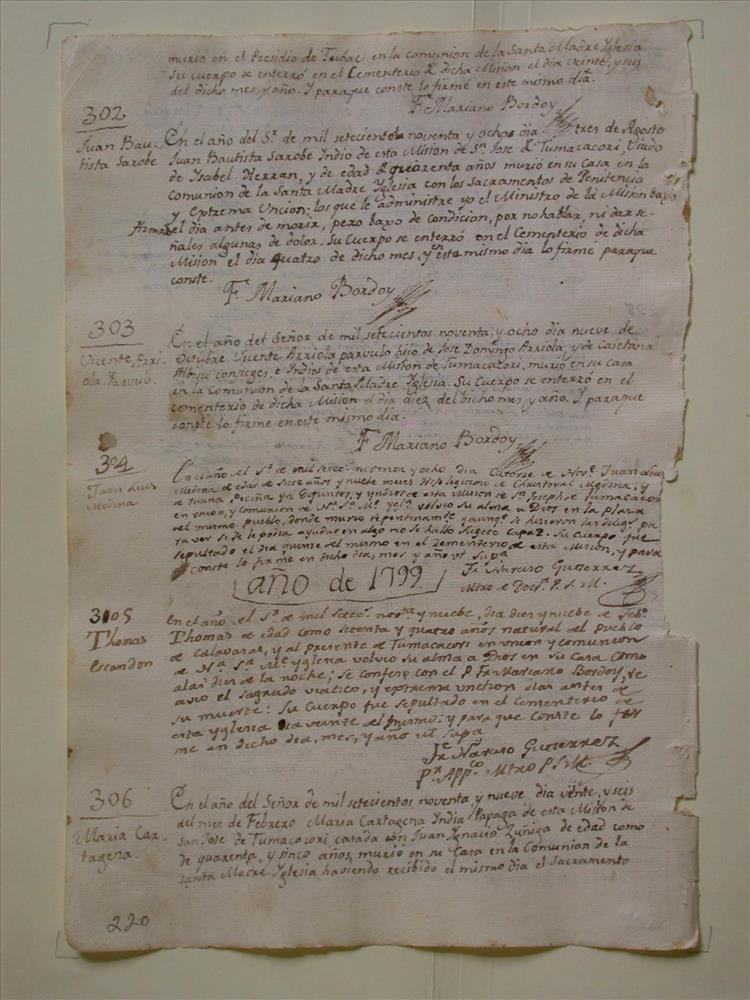 murió en el Presidio de Tubac en la comunion de la Santa Madre Iglesia.
Su cuerpo se enterró en el Cementerio de dicha Mision el dia veinte, y seis
del dicho mes, y año. Y paraque conste lo firmé en este mismo dia.
Fr. Mariano Bordoy
302
Juan Bau-
tista Saxobe
En el año del Sr. de mil setecientos noventa y ocho dia tres de Agosto
Juan Bautista Saxobe Indio de esta Mision de Sn. Jose de Tumacacori, Viudo
de Isabel Herran, y de edad de quarenta años murió en su casa en la
Comunion de la Santa Madre Iglesia con los Sacramentos de Penitencia
y Extrema Uncion; los que le administre yo el Ministro de la Mision baxo
firmado el dia antes de morir, pero baxo de condicion, por no hablar, ni dar se-
ñales algunas de dolor. Su Cuerpo se enterró en el Cementerio de dicha
Mision el dia quatro de dicho mes, y en este mismo dia lo firmé paraque
conste.
Fr. Mariano Bordoy
303
Vicente Arri-
ola Parvulo.
En el año del Señor de mil setecientos noventa, y ocho dia nueve de
Octubre Vicente Arriola parvulo hijo de Jose Domingo Arriola, y de Caietana
conjuges, e Indios de esta Mision de Tumacacori, murió en su casa
en la Comunion de la Santa Madre Iglesia. Su Cuerpo se enterró en el
cementerio de dicha Mision el dia diez del dicho mes, y año. Y paraque
conste lo firme en este mismo dia.
Fr. Mariano Bordoy
304
Juan Luis
Medina
En el año del Sr. de mil setec. noventa y ocho dia catorse de Nove. Juan Luis
Medina de edad de siete años y nuebe meses Hijo legitimo de Christoval Medina, y
de Juana ya Difuntos, y yndios de esta Mision de Sn. Joseph de Tumacacori
en union, y comunion de Na. Sa. Me. ygla. volvio su alma a Dios en la plasa
del mismo pueblo, donde murio repentinamte. y aunqe. se hisieron las diligs. pa
ra ver si se le podia ayudar en algo no se hallo sugeto capaz. Su cuerpo fue
sepultado el dia quinse del mismo en el sementerio de esta Mision, y para
conste lo firme en dicho dia, mes y año ut supa.
Fr. Narciso Gutierrez
Mtro de Doca. P. S. M.
año de 1799.
305
Thomas
Escandon
En el año del Sr. de mil setec. nota. y nuebe, dia dies y nuebe de Febo.
Thomas de edad como setenta y quatro años, natural del pueblo
de Calabasas, y al presente de Tumacacori en union y comunion
de Na. Sa. Me. yglesia volvio su alma a Dios en su casa como
a las dies de la noche; se confeso con el P. Fr. Mariano Bordoy, re
civio el sagrado viatico, y extrema unction dias antes de
su muerte: su cuerpo fue sepultado en el cementerio de
esta yglesia dia veinte del mismo: y para que conste lo fir
me en dicho dia, mes, y año ut supa
Fr. Narciso Gutierrez
Pr. Appco. Mtro P. S. M.
306
Maria Car-
tagena.
En el año del Señor de mil setecientos noventa y nueve dia veinte, y seis
del mes de Febrero Maria Cartagena India Papaga de esta Mision de
San Jose de Tumacacori, casada con Juan Ignacio Zuñiga de edad como
de quarenta, y sinco años, murió en su Casa en la Comunion de la
santa Madre Iglesia haviendo recibido el mismo dia el Sacramento
220